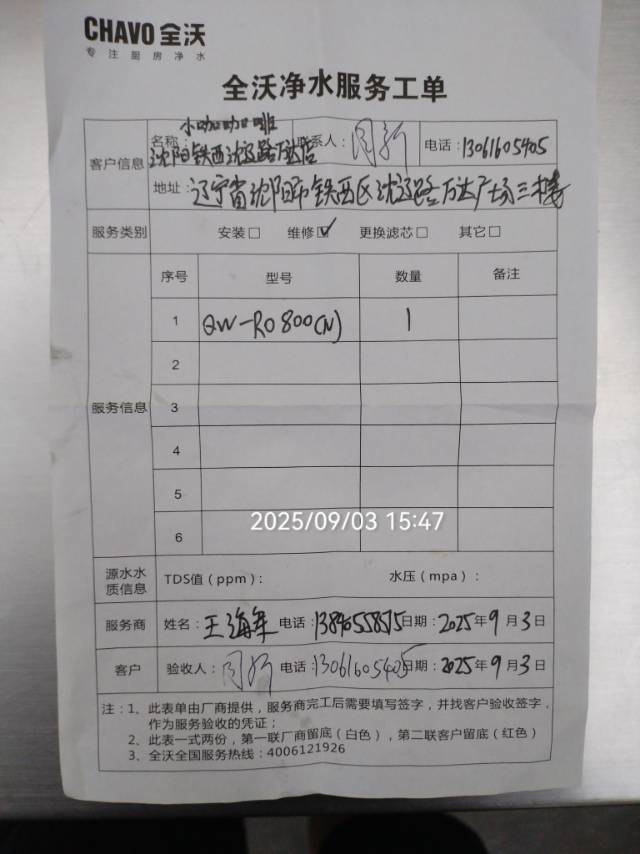 CHAVO 全沃
专注厨房净水
全沃净水服务工单
客户信息
名称: 小咖咖啡 沈阳铁西沈辽路万达店 联系人: 电话: 13061605405
地址: 辽宁省沈阳市铁西区沈辽路万达广场三楼
服务类别 安装□ 维修☑ 更换滤芯□ 其它□
服务信息
序号 型号 数量 备注
1 QW-RO800(N) 1
2
3
4
5
6
2025/09/03 15:47
源水水质信息 TDS值(ppm): 水压(mpa):
服务商 姓名: 王海军 电话: 日期: 2025年9月3日
客户 验收人: 电话: 13061605405 日期: 2025年9月3日
注:1、此表单由厂商提供,服务商完工后需要填写签字,并找客户验收签字,
作为服务验收的凭证;
2、此表一式两份,第一联厂商留底(白色),第二联客户留底(红色)
3、全沃全国服务热线:4006121926